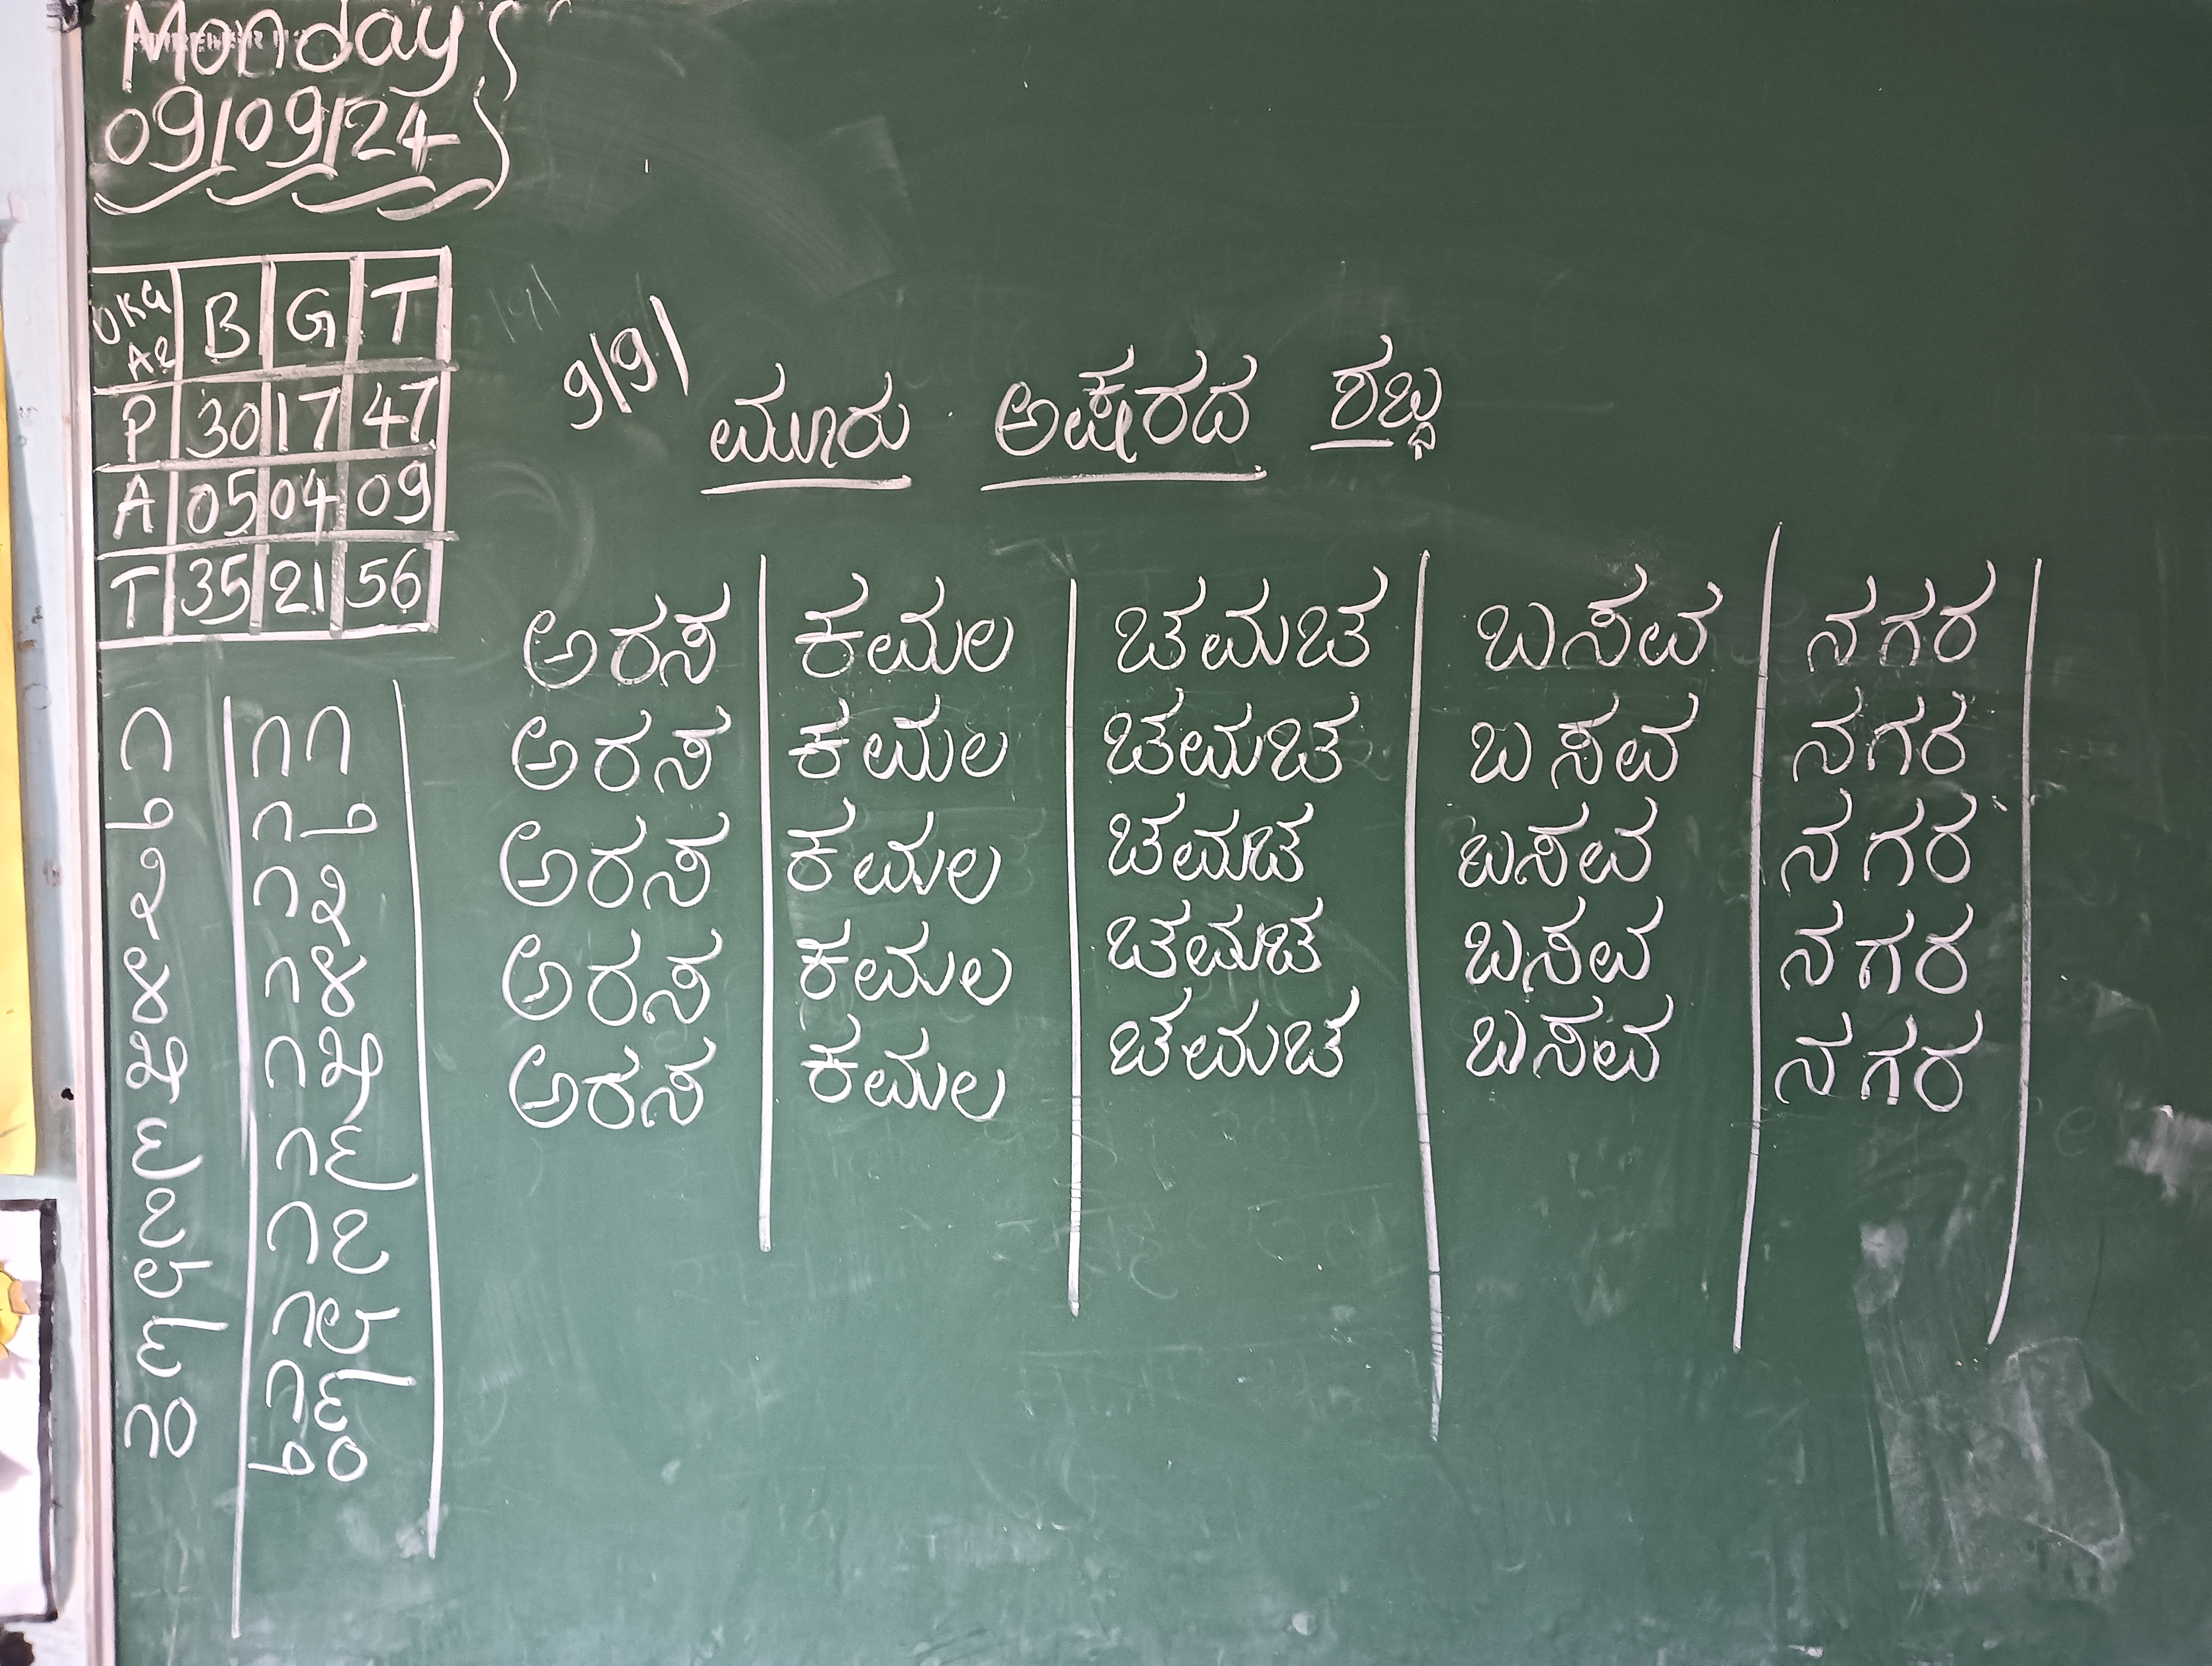 Monday
09/09/24
UKG A2 B G T
P 30 17 47
A 05 04 09
T 35 21 56
9/9/
ಮೂರು ಅಕ್ಷರದ ಶಬ್ಧ
ಅರಸ ಕಮಲ ಚಮಚ ಬಸವ ನಗರ
ಅರಸ ಕಮಲ ಚಮಚ ಬಸವ ನಗರ
ಅರಸ ಕಮಲ ಚಮಚ ಬಸವ ನಗರ
ಅರಸ ಕಮಲ ಚಮಚ ಬಸವ ನಗರ
ಅರಸ ಕಮಲ ಚಮಚ ಬಸವ ನಗರ
೧ ೧೧
೨ ೧೨
೩ ೧೩
೪ ೧೪
೫ ೧೫
೬ ೧೬
೭ ೧೭
೮ ೧೮
೯ ೧೯
೧೦ ೨೦